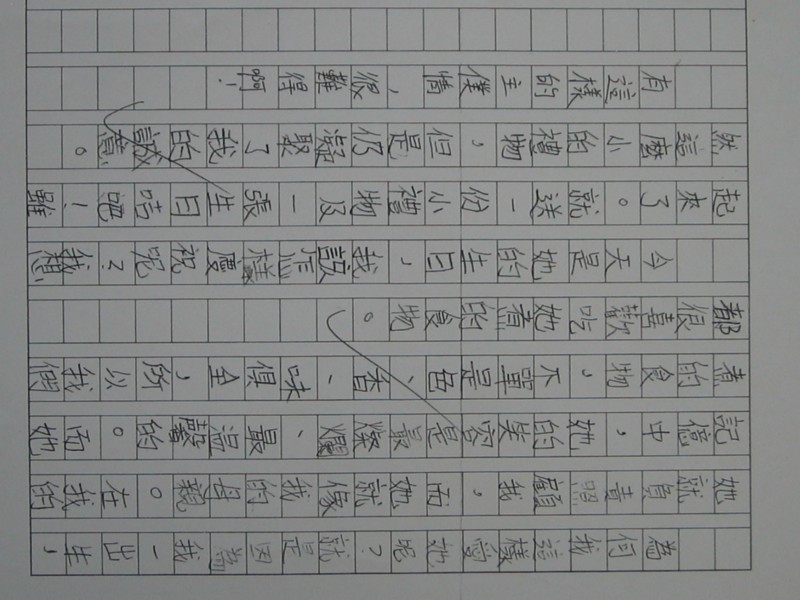 為何我這樣愛她呢？就是因為我一出生，
她就負責照顧我，而她就像我的母親。在我的
記憶中，她的笑容是最燦爛、最溫馨的。而她
煮的食物，不單是色、香、味俱全，所以我們
都很喜歡吃她煮的食物。
今天是她的生日，我該怎樣慶祝呢？我想
起來了。就送一份小禮物及一張生日咭吧！雖
然這麼小的禮物，但是仍凝聚了我的誠意。
有這樣的主僕情，很難得啊！